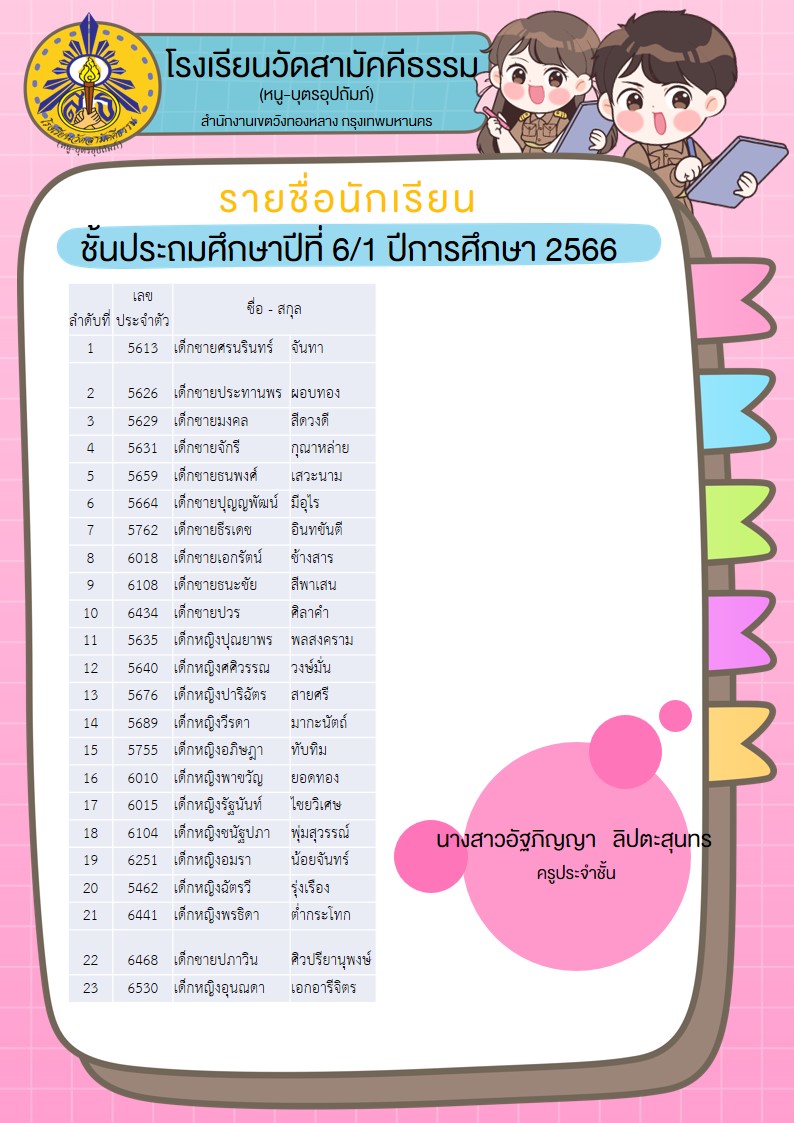 โรงเรียนวัดสามัคคีธรรม
(หนู-บุตรอุปถัมภ์)
สำนักงานเขตวังทองหลาง กรุงเทพมหานคร
(หนู-บุตรอุปถัมภ์)
รายชื่อนักเรียน
ชั้นประถมศึกษาปีที่ 6/1 ปีการศึกษา 2566
ลำดับที่ เลขประจำตัว ชื่อ - สกุล
1 5613 เด็กชายศรนรินทร์ จันทา
2 5626 เด็กชายประทานพร ผอบทอง
3 5629 เด็กชายมงคล สีดวงดี
4 5631 เด็กชายจักรี กุณาหล่าย
5 5659 เด็กชายธนพงศ์ เสวะนาม
6 5664 เด็กชายปุญญพัฒน์ มีอุไร
7 5762 เด็กชายธีรเดช อินทขันตี
8 6018 เด็กชายเอกรัตน์ ช้างสาร
9 6108 เด็กชายธนะชัย สีพาเสน
10 6434 เด็กชายปวร ศิลาคำ
11 5635 เด็กหญิงปุณยาพร พลสงคราม
12 5640 เด็กหญิงศศิวรรณ วงษ์มั่น
13 5676 เด็กหญิงปาริฉัตร สายศรี
14 5689 เด็กหญิงวีรดา มากะนัตถ์
15 5755 เด็กหญิงอภิษฎา ทับทิม
16 6010 เด็กหญิงพาขวัญ ยอดทอง
17 6015 เด็กหญิงรัฐนันท์ ไชยวิเศษ
18 6104 เด็กหญิงชนัฐปภา พุ่มสุวรรณ์
19 6251 เด็กหญิงอมรา น้อยจันทร์
20 5462 เด็กหญิงฉัตรวี รุ่งเรือง
21 6441 เด็กหญิงพรธิดา ต่ำกระโทก
22 6468 เด็กชายปภาวิน ศิวปรียานุพงษ์
23 6530 เด็กหญิงอุนณดา เอกอารีจิตร
นางสาวอัฐภิญญา ลิปตะสุนทร
ครูประจำชั้น